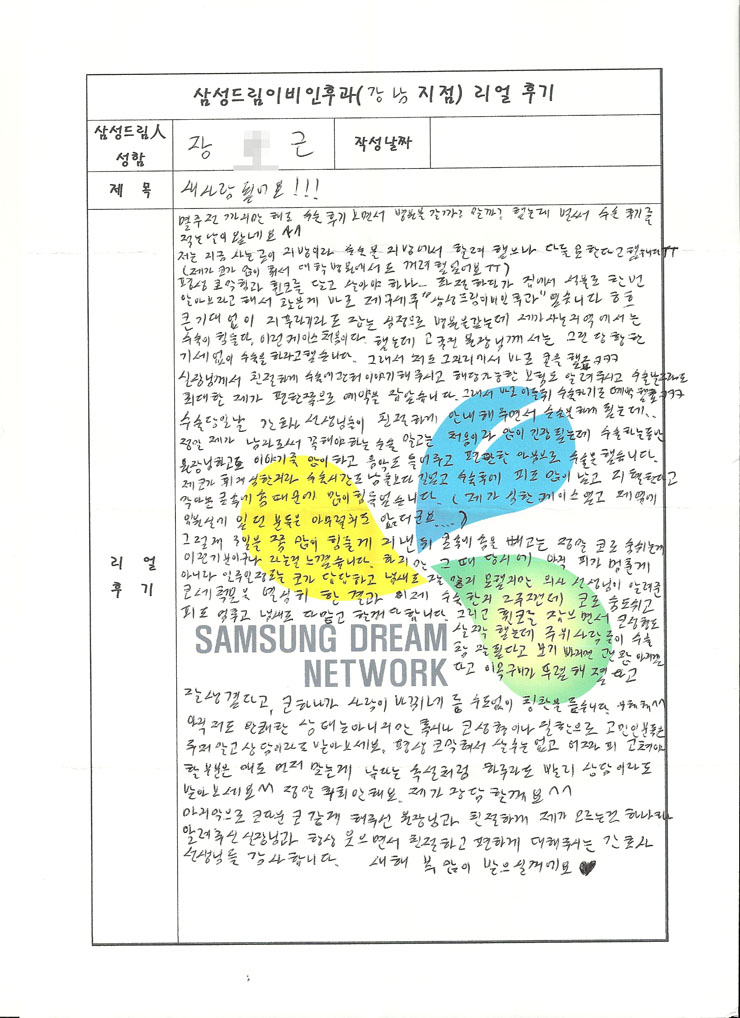 삼성드림이비인후과(강남 지점) 리얼 후기
삼성드림人
성함
장 근
작성날짜
제 목
새사람 됬어요!!!
리 얼
후 기
몇주전 까지만 해도 수술 후기 보면서 병원을 갈까? 말까? 했는데 벌써 수술 후기를
적는날이 왔네요 ^^
저는 지금 사는곳이 지방이라 수술을 지방에서 할려 했으나 다들 못한다고 했습니다 ㅠㅠ
(제가 코가 많이 휘어서 대학병원에서도 꺼려 했었어요 ㅠㅠ)
평생 코막힘과 휜코를 달고 살아야 하나.. 하던차에 집에서 서울로 한번
알아보라고 해서 찾은게 바로 제구세주 "삼성드림이비인후과" 였습니다 ㅎㅎ
큰기대 없이 지푸라기라도 잡는 심정으로 병원을 갔는데 제가사는지역에서는
수술이 힘들다, 이런케이스 처음이다. 했는데 원장님께서는 그런 당황한
기세없이 수술을 하라고했습니다. 그래서 저도 그자리에서 바로 콜을 했죠 ㅋㅋㅋ
실장님께서 친절하게 수술에관해 이야기해 주시고 해당가능한 보험도 알려주시고 수술날짜도
최대한 제가 편한쪽으로 예약을 잡았습니다. 그래서 바로 수술하기로 예약 했죠 ㅋㅋㅋ
수술당일날 간호사 선생님들이 친절하게 안내해 주면서 수술준비하게 됬는데..
정말 제가 남자로써 꼭해야하는 수술 말고는 처음이라 많이 긴장됬는데 수술하는동안
원장님하고도 이야기를 많이하고 음악도 들려주고 편안한 마음으로 수술을 했습니다.
제코가 휘기 심한지라 수술시간도 남들보다 길었고 수술후에 피도 많이 나고 지혈한다고
막아논 콧속에 솜 때문에 많이 힘들었습니다. (제가 심한 케이스였고 제옆에
입원실에 있던 분들은 아무렇지도 않더군요....)
그렇게 3일을 쫌 많이 힘들게 지낸뒤 콧속에 솜을 빼고는 정말 코로 숨쉬는게
이런기분이구나 라는걸 느꼈습니다. 하지만 그때 당시에 아직 피가 멈춘게
아니라 일주일정도는 코가 답답하고 냄새도 잘 맡지 못했지만 의사 선생님이 알려준
코세척을 열심히 한 결과 이제 수술한지 2주짼데 코로 숨도쉬고
피도 멈추고 냄새도 다맡고 할꺼 다합니다. 그리고 휜코를 잡으면서 코성형도
살짝 했는데 주위 사람들이 수술
참 잘됬다고 보기 아까전
다고 이목구비가 뚜렷해 졌다고
SAMSUNG DREAM
NETWORK
잘생겼다고, 코하나가 사람이 바뀌네 등 수도없이 칭찬을 듣습니다. ^^
아직 저도 완쾌한 상태는아니지만 혹시나 코성형이나 비염 등으로 고민인분들은
주저 말고 상담이라도 받아보세요. 평생 코막혀서 살수는 없고 어차피 고쳐야
할부분은 매도 먼저 맞는게 낫다는 속설처럼 하루라도 빨리 상담이라도
받아보세요^^ 정말 후회안해요. 제가 장담 할꺼요 ^^
마지막으로 코다운 코 갖게 해주신 원장님과 친절하게 제가 모르는건 하나하나
알려주신 실장님과 항상 웃으면서 친절하고 편하게 대해주시는 간호사
선생님들 감사합니다. 새해 복 많이 받으실꺼에요 ♥